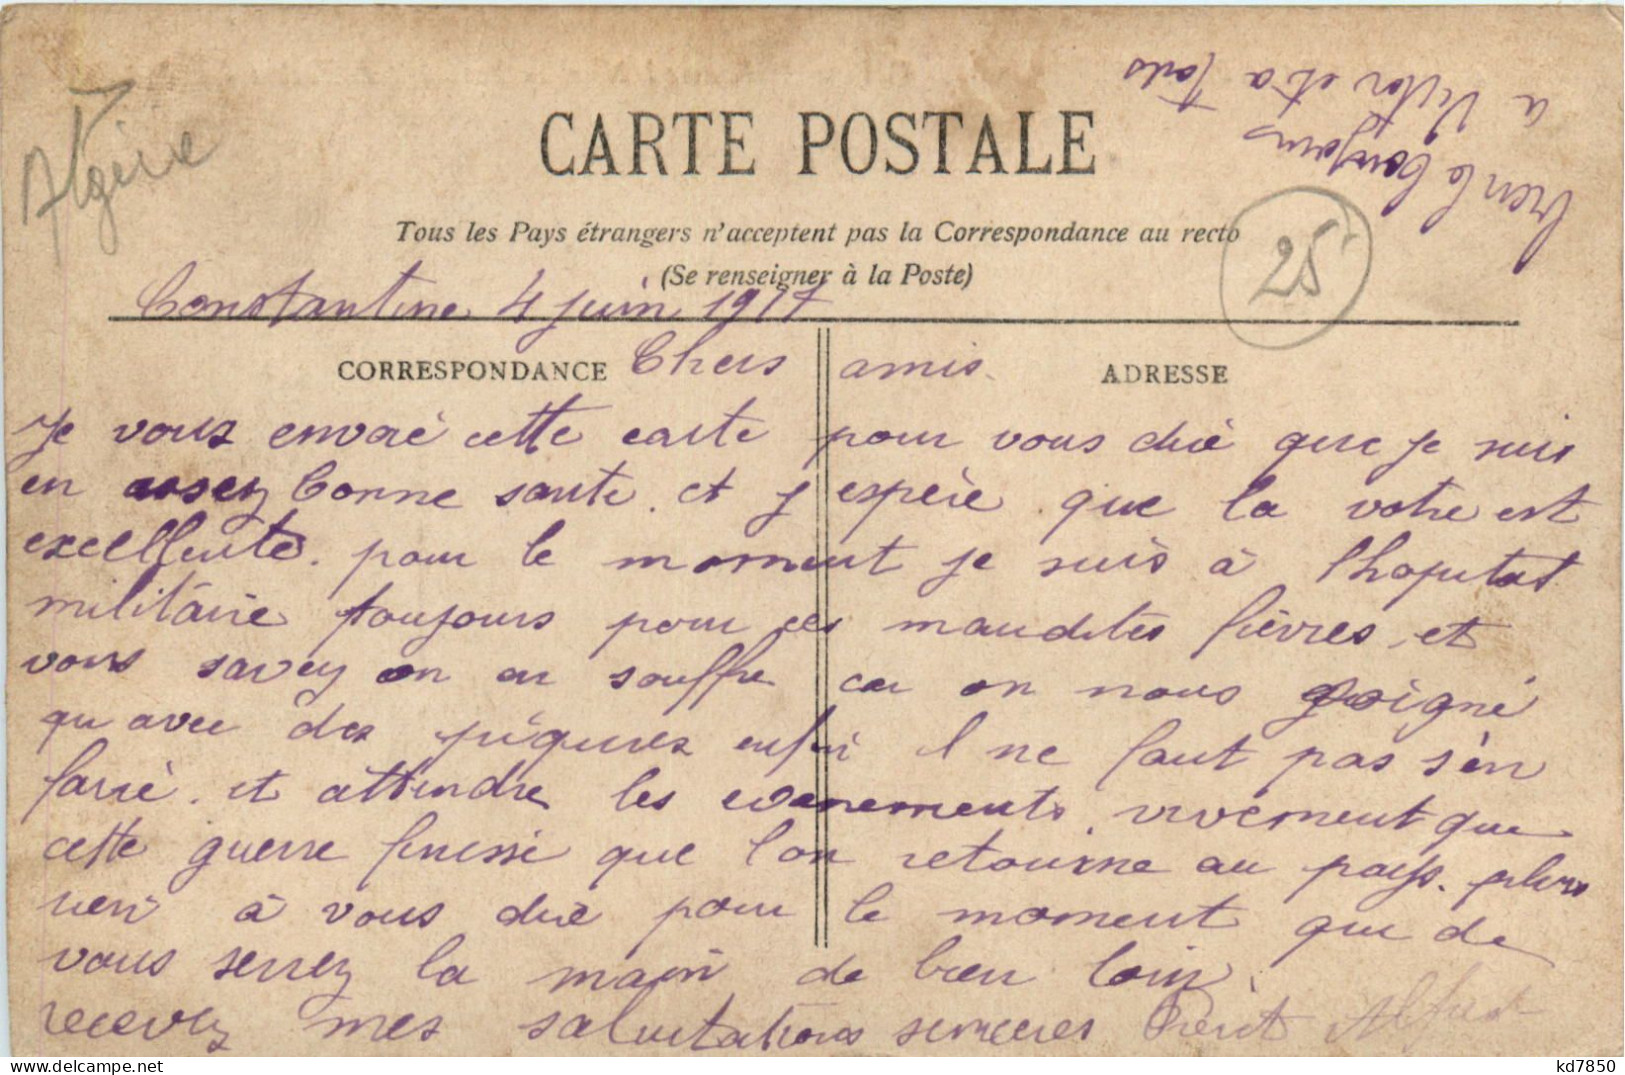 Algérie
CARTE POSTALE
Tous les Pays étrangers n'acceptent pas la Correspondance au recto
(Se renseigner à la Poste)
bien le bonjours
a Victor et a tous
25
Constantine 4 juin 1917
CORRESPONDANCE
Chers amis.
ADRESSE
Je vous envoié cette carte pour vous dire que je suis
en assez bonne sante. et j espère que la votre est
excellente. pour le moment je suis à l hopital
militaire toujours pour ces maudites fièvres, et
vous savez on en souffre car on nous soigné
qu avec des piqures enfin il ne faut pas s'en
faire. et attendre les evenements. vivement que
cette guerre finisse que l on retourne au pays. plus
rien à vous dire pour le moment que de
vous serrez la main de bien loin.
recevez mes salutations sinceres Alfred
kd7850